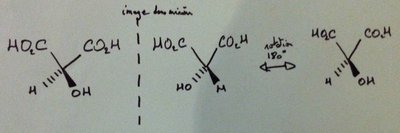 image dans miroir
HO₂C CO₂H
H OH
HO₂C CO₂H
HO H
rotation
180°
HO₂C CO₂H
H OH